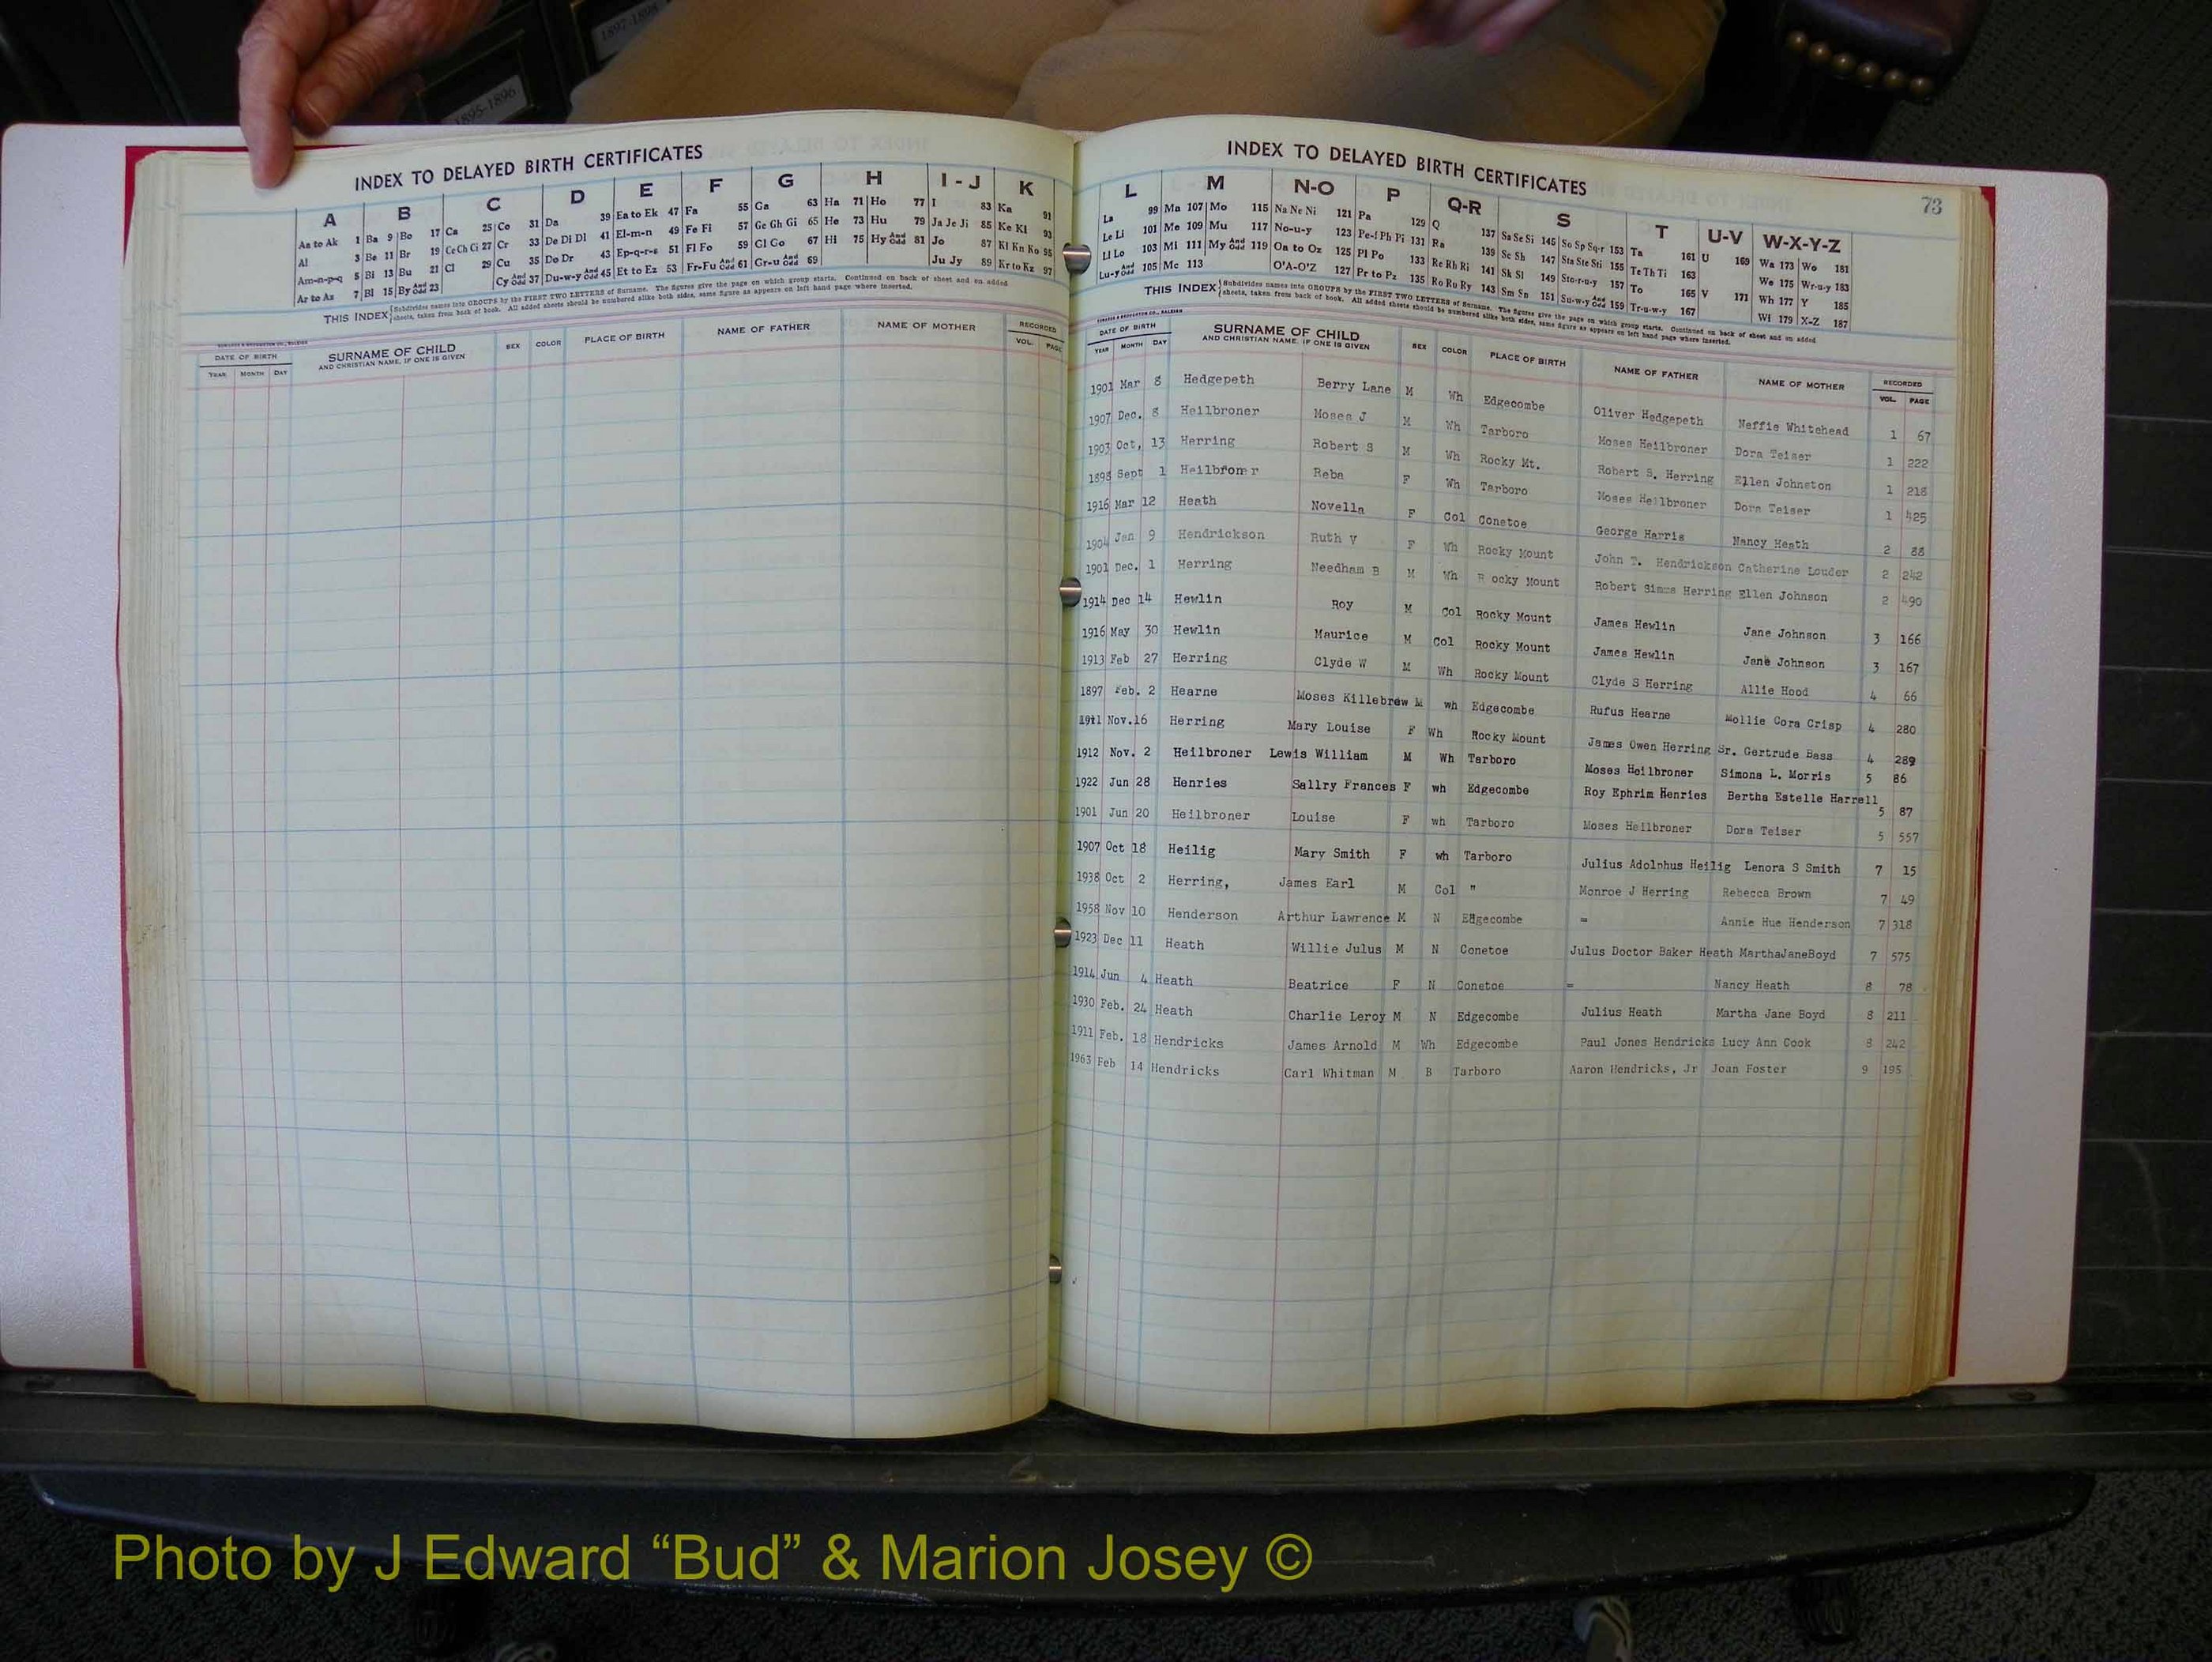 1897-1898
1895-1896
INDEX TO DELAYED BIRTH CERTIFICATES
A B C D E F G H I - J K
Aa to Ak 1 Ba 9 Bo 17 Ca 25 Co 31 Da 39 Ea to Ek 47 Fa 55 Ga 63 Ha 71 Ho 77 I 83 Ka 91
Al 3 Be 11 Br 19 Ce Ch Ci 27 Cr 33 De Di Dl 41 El-m-n 49 Fe Fi 57 Ge Gh Gi 65 He 73 Hu 79 Ja Je Ji 85 Ke Ki 93
Am-n-p-q 5 Bi 13 Bu 21 Cl 29 Cu 35 Do Dr 43 Ep-q-r-s 51 Fl Fo 59 Gl Go 67 Hi 75 Hy And Odd 81 Jo 87 Kl Kn Ko 95
Ar to Az 7 Bl 15 By And Odd 23 Cy And Odd 37 Du-w-y And Odd 45 Et to Ez 53 Fr-Fu And Odd 61 Gr-u And Odd 69 Ju Jy 89 Kr to Kz 97
THIS INDEX Subdivides names into GROUPS by the FIRST TWO LETTERS of Surname. The figures give the page on which group starts. Continued on back of sheet and on added
sheets, taken from back of book. All added sheets should be numbered alike both sides, same figure as appears on left hand page where inserted.
DATE OF BIRTH SURNAME OF CHILD SEX COLOR PLACE OF BIRTH NAME OF FATHER NAME OF MOTHER RECORDED
YEAR MONTH DAY AND CHRISTIAN NAME, IF ONE IS GIVEN VOL. PAGE
INDEX TO DELAYED BIRTH CERTIFICATES
73
L M N-O P Q-R S T U-V W-X-Y-Z
La 99 Ma 107 Mo 115 Na Ne Ni 121 Pa 129 Q 137 Sa Se Si 145 So Sp Sq-r 153 Ta 161 U 169 Wa 173 Wo 181
Le Li 101 Me 109 Mu 117 No-u-y 123 Pe-f Ph Pi 131 Ra 139 Sc Sh 147 Sta Ste Sti 155 Te Th Ti 163 We 175 Wr-u-y 183
Ll Lo 103 Mi 111 My And Odd 119 Oa to Oz 125 Pl Po 133 Re Rh Ri 141 Sk Sl 149 Sto-r-u-y 157 To 165 V 171 Wh 177 Y 185
Lu-y And Odd 105 Mc 113 O'A-O'Z 127 Pr to Pz 135 Ro Ru Ry 143 Sm Sn 151 Su-w-y And Odd 159 Tr-u-w-y 167 Wi 179 X-Z 187
THIS INDEX Subdivides names into GROUPS by the FIRST TWO LETTERS of Surname. The figures give the page on which group starts. Continued on back of sheet and on added
sheets, taken from back of book. All added sheets should be numbered alike both sides, same figure as appears on left hand page where inserted.
DATE OF BIRTH SURNAME OF CHILD SEX COLOR PLACE OF BIRTH NAME OF FATHER NAME OF MOTHER RECORDED
YEAR MONTH DAY AND CHRISTIAN NAME, IF ONE IS GIVEN VOL. PAGE
1901 Mar 8 Hedgepeth Berry Lane M Wh Edgecombe Oliver Hedgepeth Neffie Whitehead 1 67
1907 Dec. 8 Heilbroner Moses J M Wh Tarboro Moses Heilbroner Dora Teiser 1 222
1903 Oct, 13 Herring Robert S M Wh Rocky Mt. Robert S. Herring Ellen Johnston 1 218
1898 Sept 1 Heilbroner Reba F Wh Tarboro Moses Heilbroner Dora Teiser 1 425
1916 Mar 12 Heath Novella F Col Conetoe George Harris Nancy Heath 2 88
1904 Jan 9 Hendrickson Ruth V F Wh Rocky Mount John T. Hendrickson Catherine Louder 2 242
1901 Dec. 1 Herring Needham B M Wh R ocky Mount Robert Simms Herring Ellen Johnson 2 490
1914 Dec 14 Hewlin Roy M Col Rocky Mount James Hewlin Jane Johnson 3 166
1916 May 30 Hewlin Maurice M Col Rocky Mount James Hewlin Jane Johnson 3 167
1913 Feb 27 Herring Clyde W M Wh Rocky Mount Clyde S Herring Allie Hood 4 66
1897 Feb. 2 Hearne Moses Killebrew M wh Edgecombe Rufus Hearne Mollie Cora Crisp 4 280
1911 Nov.16 Herring Mary Louise F Wh Rocky Mount James Owen Herring Sr. Gertrude Bass 4 289
1912 Nov. 2 Heilbroner Lewis William M Wh Tarboro Moses Heilbroner Simona L. Morris 5 86
1922 Jun 28 Henries Sallry Frances F wh Edgecombe Roy Ephrim Henries Bertha Estelle Harrell 5 87
1901 Jun 20 Heilbroner Louise F wh Tarboro Moses Heilbroner Dora Teiser 5 557
1907 Oct 18 Heilig Mary Smith F wh Tarboro Julius Adolphus Heilig Lenora S Smith 7 15
1938 Oct 2 Herring, James Earl M Col " Monroe J Herring Rebecca Brown 7 49
1958 Nov 10 Henderson Arthur Lawrence M N Edgecombe = Annie Hue Henderson 7 318
1923 Dec 11 Heath Willie Julus M N Conetoe Julus Doctor Baker Heath MarthaJaneBoyd 7 575
1914 Jun 4 Heath Beatrice F N Conetoe = Nancy Heath 8 78
1930 Feb. 24 Heath Charlie Leroy M N Edgecombe Julius Heath Martha Jane Boyd 8 211
1911 Feb. 18 Hendricks James Arnold M Wh Edgecombe Paul Jones Hendricks Lucy Ann Cook 8 242
1963 Feb 14 Hendricks Carl Whitman M B Tarboro Aaron Hendricks, Jr Joan Foster 9 195
Photo by J Edward “Bud” & Marion Josey ©